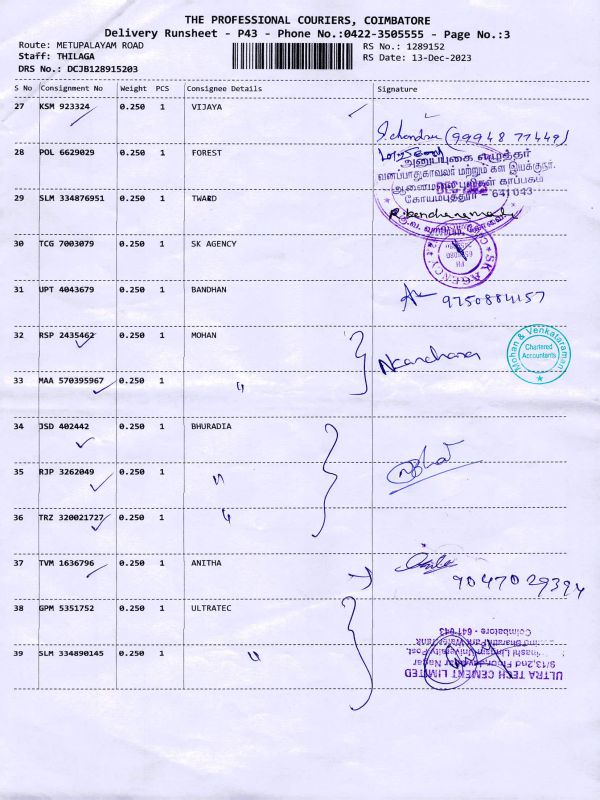 THE PROFESSIONAL COURIERS, COIMBATORE
Delivery Runsheet - P43 - Phone No.:0422-3505555 - Page No.:3
Route: METUPALAYAM ROAD RS No.: 1289152
Staff: THILAGA RS Date: 13-Dec-2023
DRS No.: DCJB128915203
S No Consignment No Weight PCS Consignee Details Signature
27 KSM 923324 0.250 1 VIJAYA
(99948 77449)
28 POL 6629029 0.250 1 FOREST
அனுப்புகை எழுத்தர்
வனப்பாதுகாவலர் மற்றும் கள இயக்குநர்
ஆனைமலை புலிகள் காப்பகம்
கோயம்புத்தூர் - 641 043
29 SLM 334876951 0.250 1 TWARD
30 TCG 7003079 0.250 1 SK AGENCY
SK AGENCY
31 UPT 4043679 0.250 1 BANDHAN
32 RSP 2435462 0.250 1 MOHAN
Mohan & Venkataraman
Chartered
Accountants
33 MAA 570395967 0.250 1 "
34 JSD 402442 0.250 1 BHURADIA
35 RJP 3262049 0.250 1 "
36 TRZ 320021727 0.250 1 "
37 TVM 1636796 0.250 1 ANITHA
9047029394
38 GPM 5351752 0.250 1 ULTRATEC
39 SLM 334890145 0.250 1 "
ULTRA TECH CEMENT LIMITED
9/13, 2nd Floor,
Coimbatore - 641 043